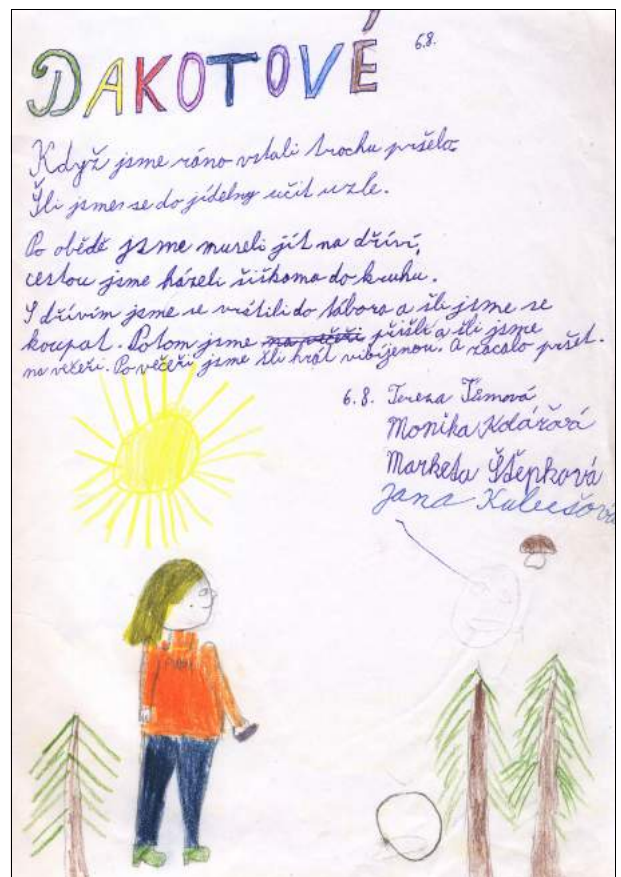 DAKOTOVÉ 6.8.
Když jsme ráno vstali trochu pršelo.
Šli jsme se do jídelny učit uzle.
Po obědě jsme museli jít na dříví,
cestou jsme házeli šiškama do kruhu.
S dřívím jsme se vrátili do tábora a šli jsme se
koupat. Potom jsme na večeři přišli a šli jsme
na večeři. Po večeři jsme šli hrát vibíjenou. A začalo pršet.
6.8. Tereza
Monika Kolářová
Marketa Štěpková
Jana